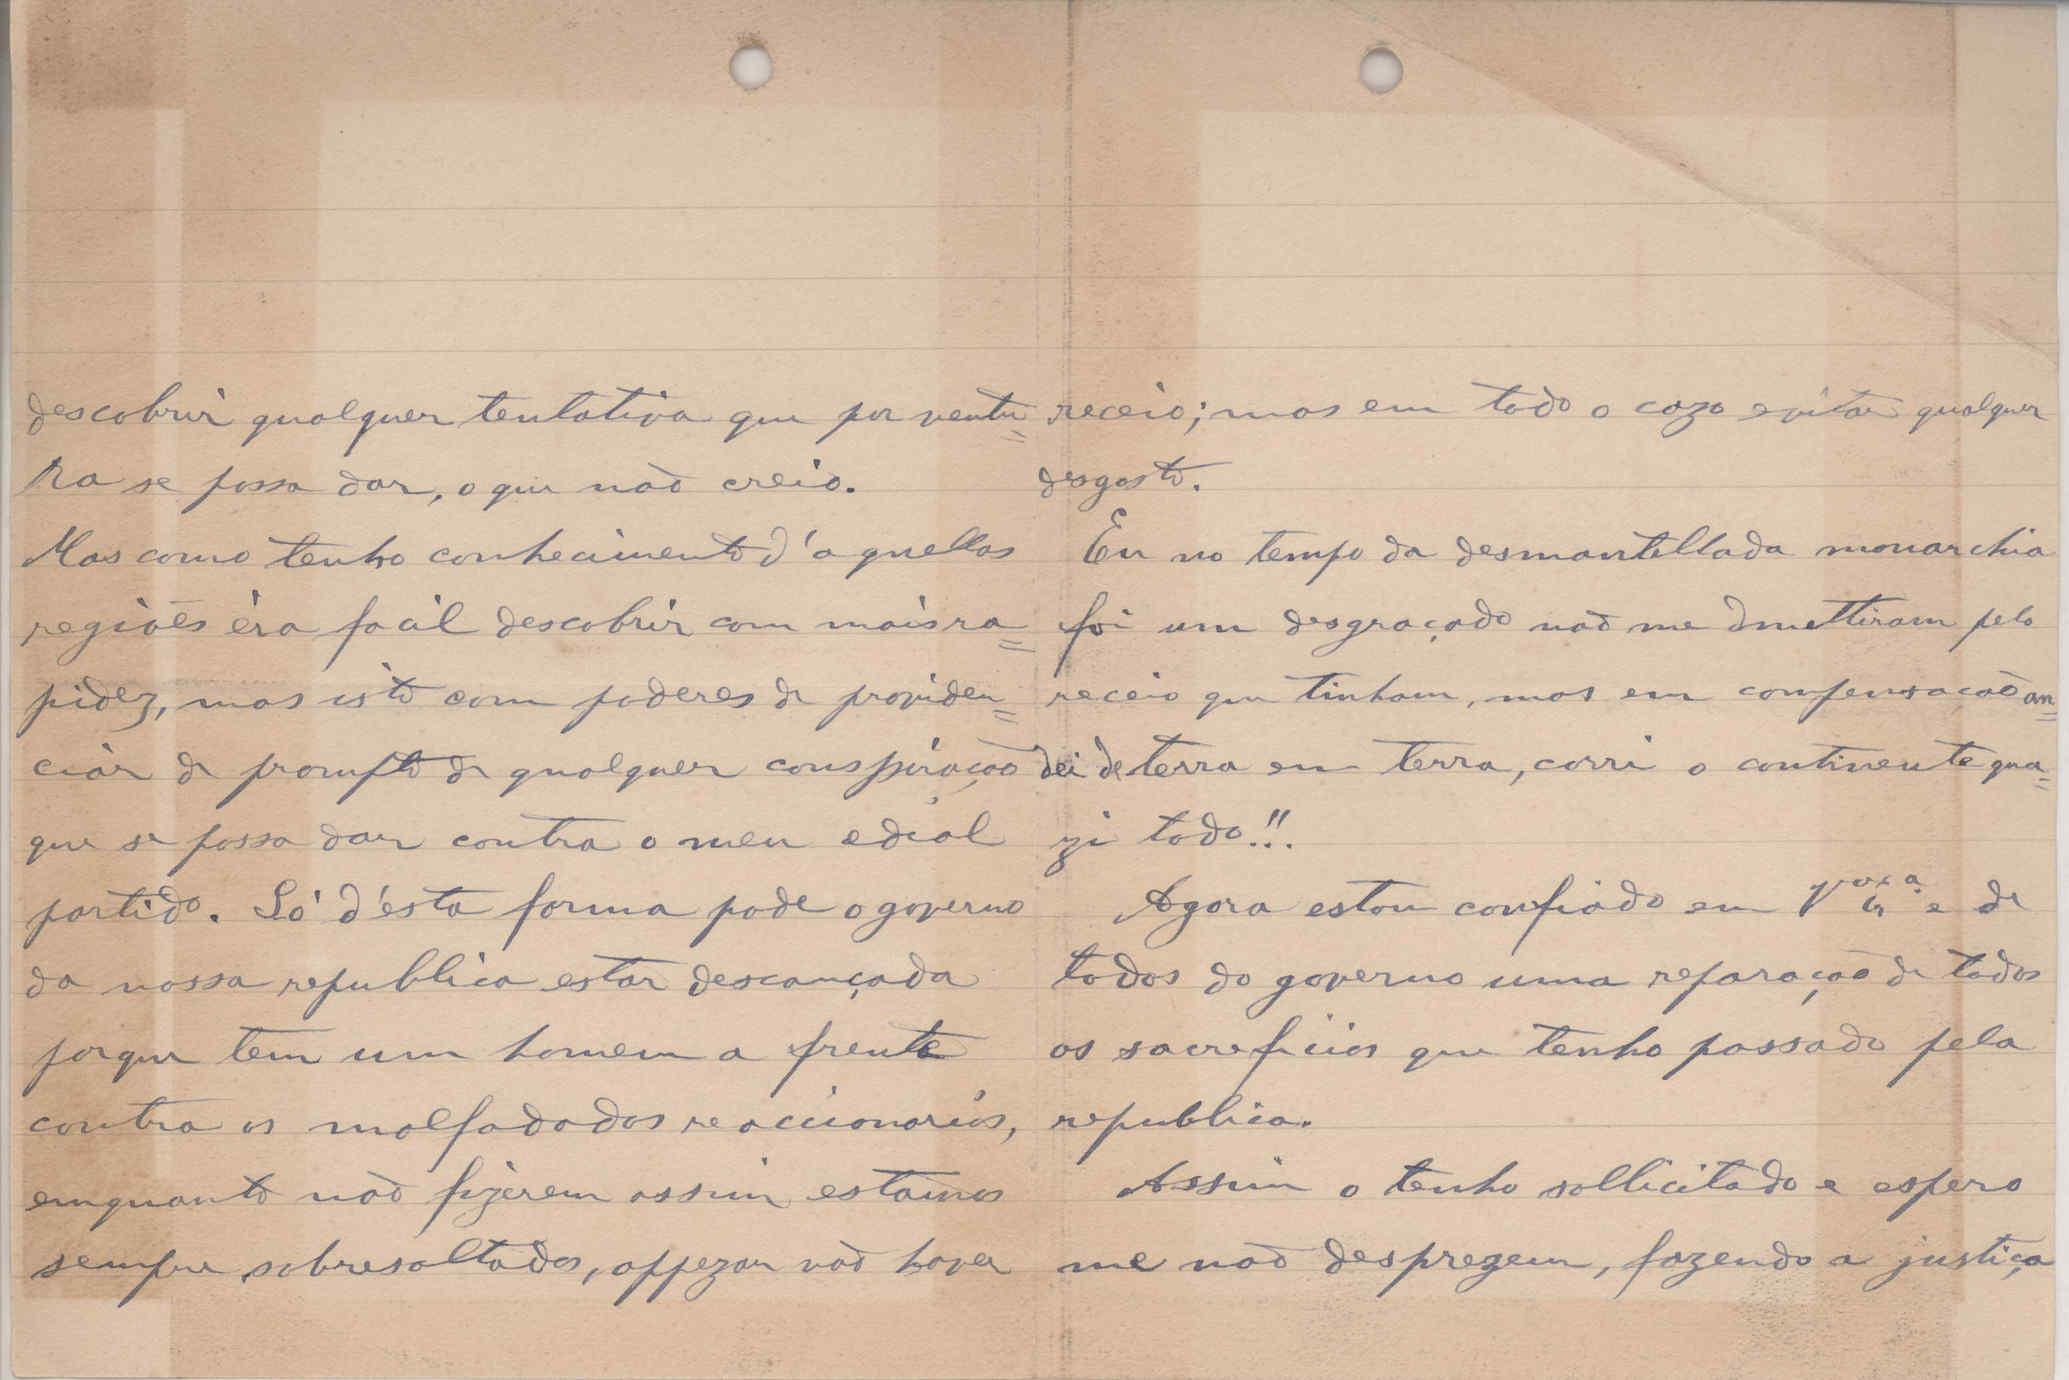 descobrir qualquer tentativa que por ventu=
ra se possa dar, o que não creio.
Mas como tenho conhecimento d'aquellas
regiões éra facil descobrir com mais ra=
pidez, mas isto com poderes de providen=
ciar de prompto de qualquer conspiração
que se possa dar contra o meu edial
partido. Só d'ésta forma pode o governo
da nossa republica estar descançada
porque tem um homem a frente
contra os malfadados reaccionarios,
emquanto não fizerem assim estamos
sempre sobresaltados, appezar não haver
receio; mas em todo o cazo evitar qualquer
desgosto.
Eu no tempo da desmantellada monarchia
foi um desgraçado não me dmettiram pelo
receio que tinham, mas em compensação an=
dei de terra em terra, corri o continente qua=
zi todo!!.
Agora estou confiado em V. Exª e de
todos do governo uma reparação de todos
os sacreficios que tenho passado pela
republica.
Assim o tenho sollicitado e espero
me não desprezem, fazendo a justiça